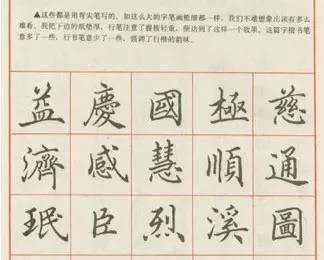 ▲这些都是用弯尖笔写的，如这么大的字笔画粗细都一样，我们不难想象出该有多么
难看。我把下边的纸垫厚，行笔注意了提按轻重，便达到了这样一个效果。这篇字楷书笔
意多了一些，行书笔意少了一些，强调了行楷的韵味。
益慶國極慈
濟感慧順通
珉臣烈溪圖